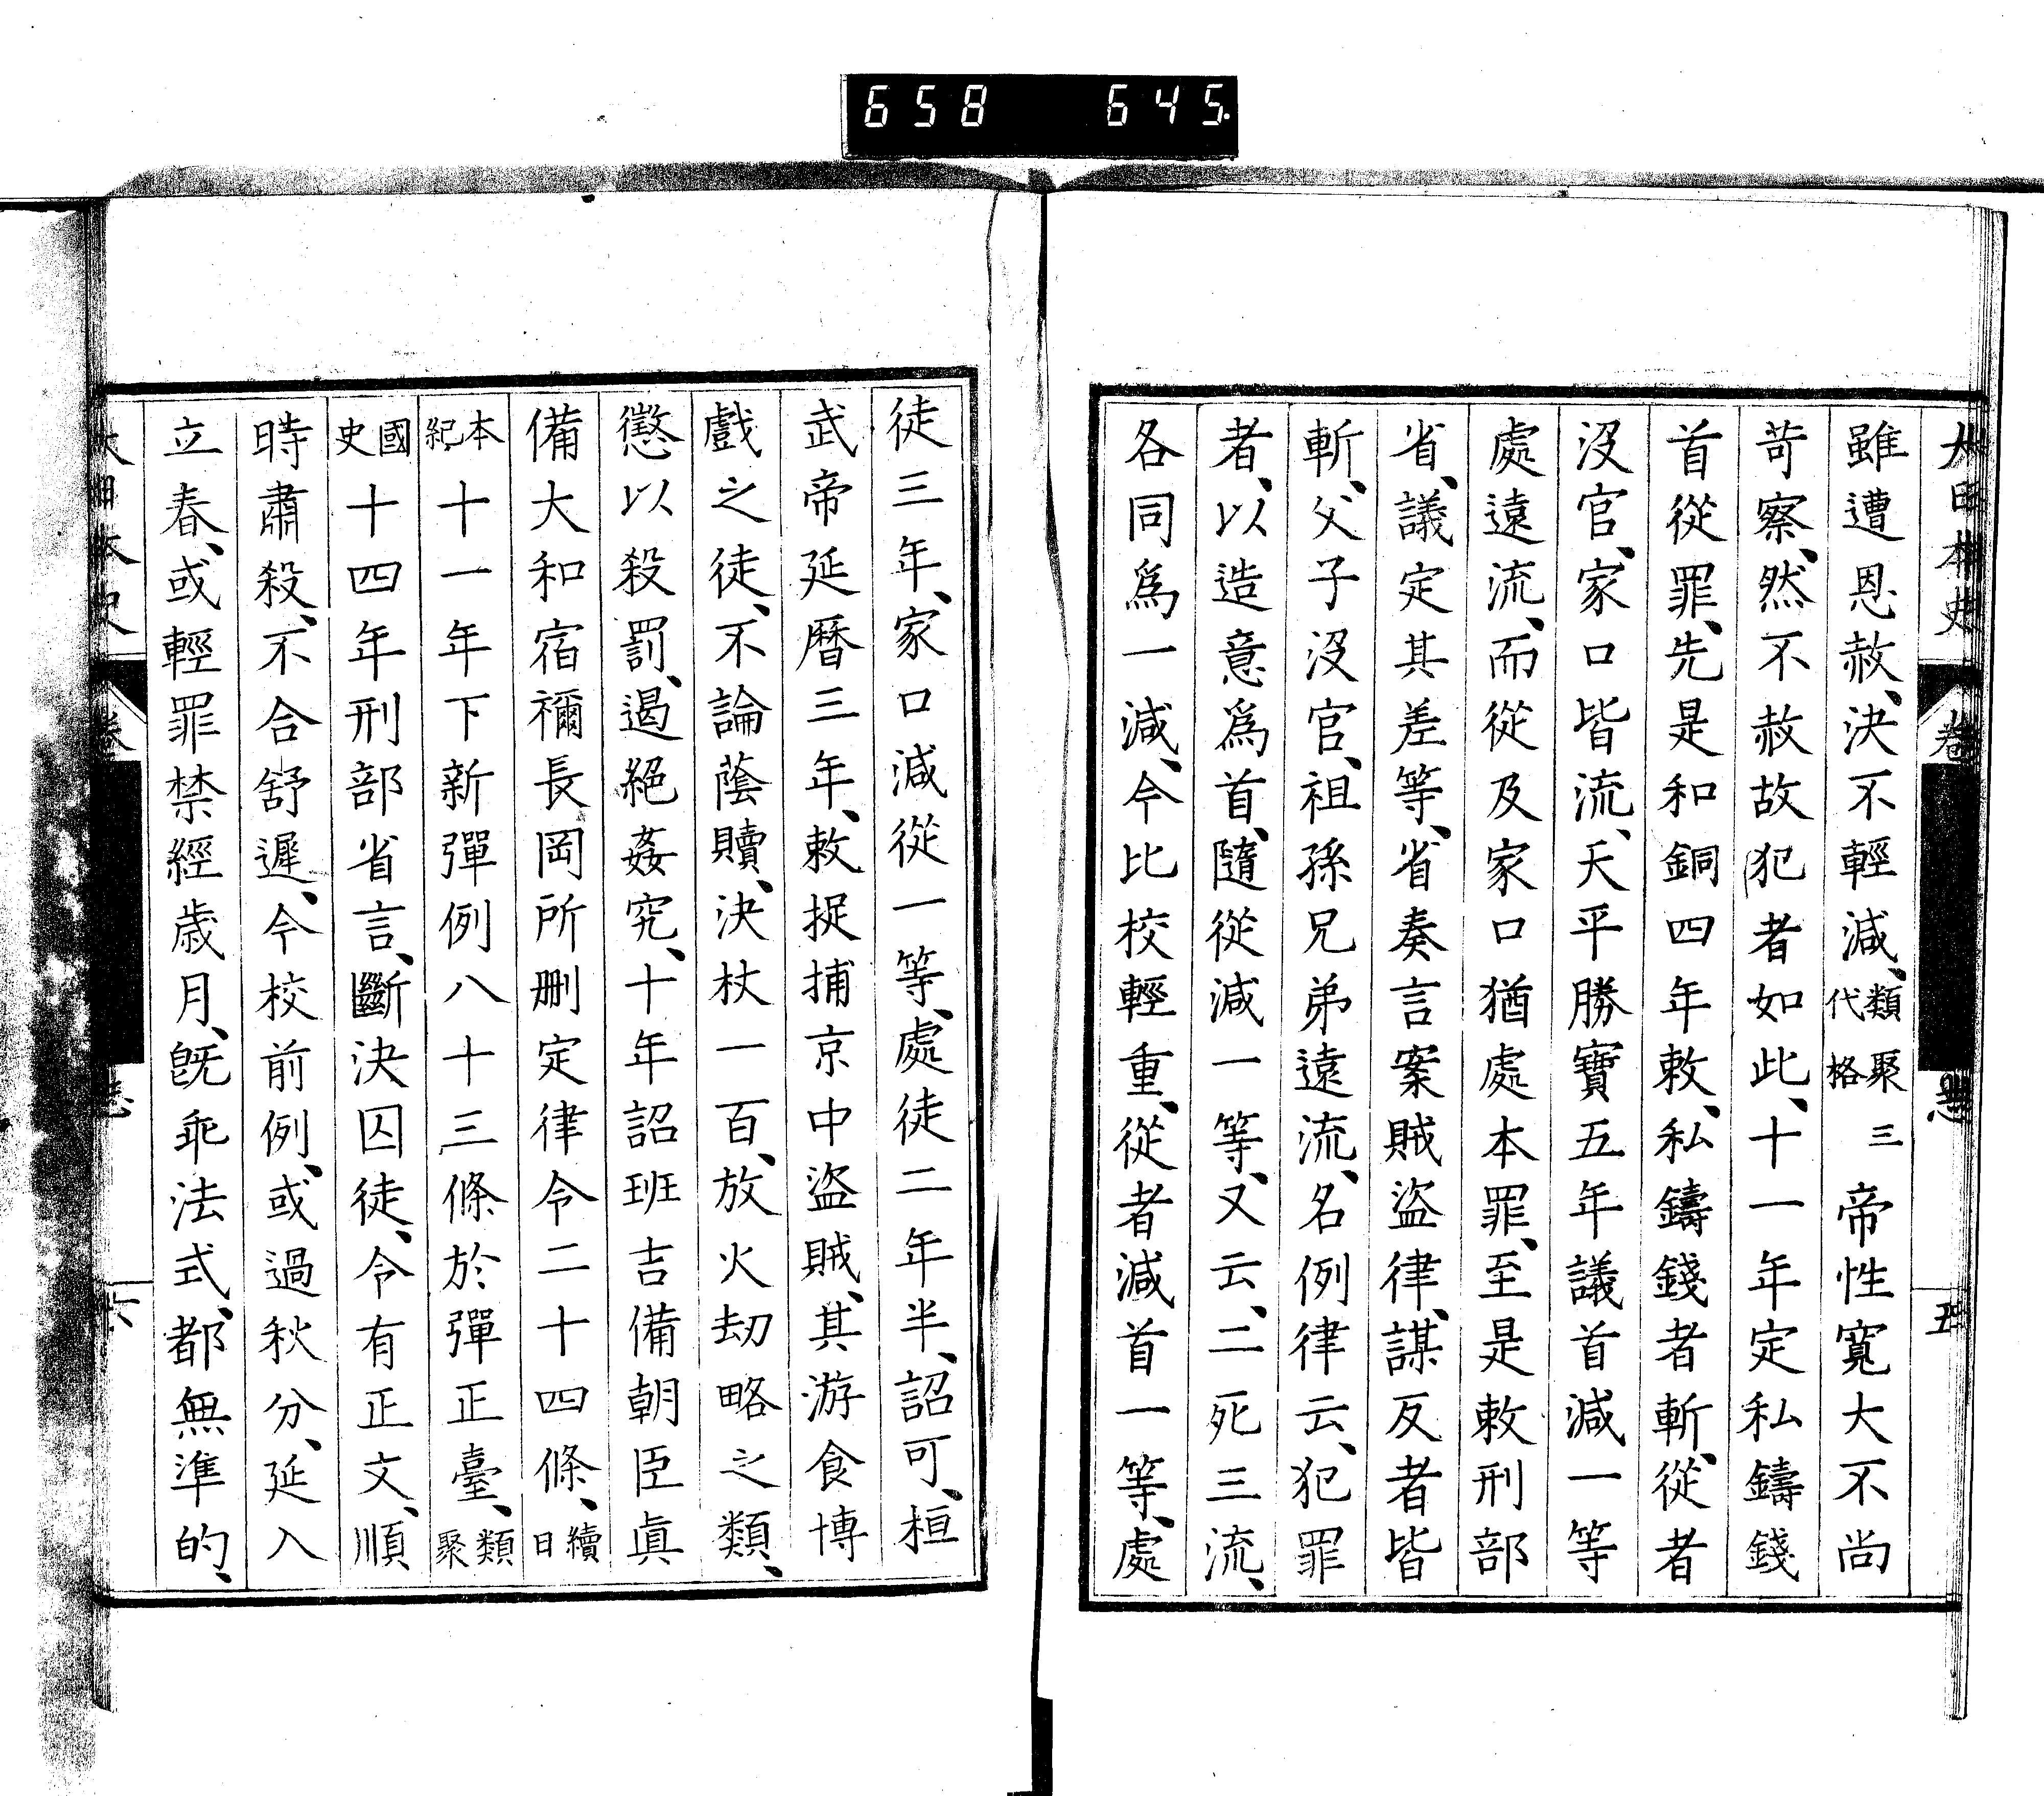 658 645
大日本史 卷 志 五
雖遭恩赦、決不輕減、類聚三代格 帝性寬大不尚
苛察、然不赦故犯者如此、十一年定私鑄錢
首從罪、先是和銅四年敕、私鑄錢者斬、從者
沒官、家口皆流、天平勝寶五年議首減一等
處遠流、而從及家口猶處本罪、至是敕刑部
省、議定其差等、省奏言案賊盜律、謀反者皆
斬、父子沒官、祖孫兄弟遠流、名例律云、犯罪
者、以造意爲首、隨從減一等、又云、二死三流、
各同爲一減、今比校輕重、從者減首一等、處
徒三年、家口減從一等、處徒二年半、詔可、桓
武帝延曆三年、敕捉捕京中盜賊、其游食博
戲之徒、不論蔭贖、決杖一百、放火劫略之類、
懲以殺罰、遏絕姦宄、十年詔班吉備朝臣眞
備大和宿禰長岡所刪定律令二十四條、續日
本紀 十一年下新彈例八十三條於彈正臺、類聚
國史 十四年刑部省言、斷決囚徒、令有正文、順
時肅殺、不合舒遲、今校前例、或過秋分、延入
立春、或輕罪禁經歲月、旣乖法式、都無準的、
大日本史 卷 志 六